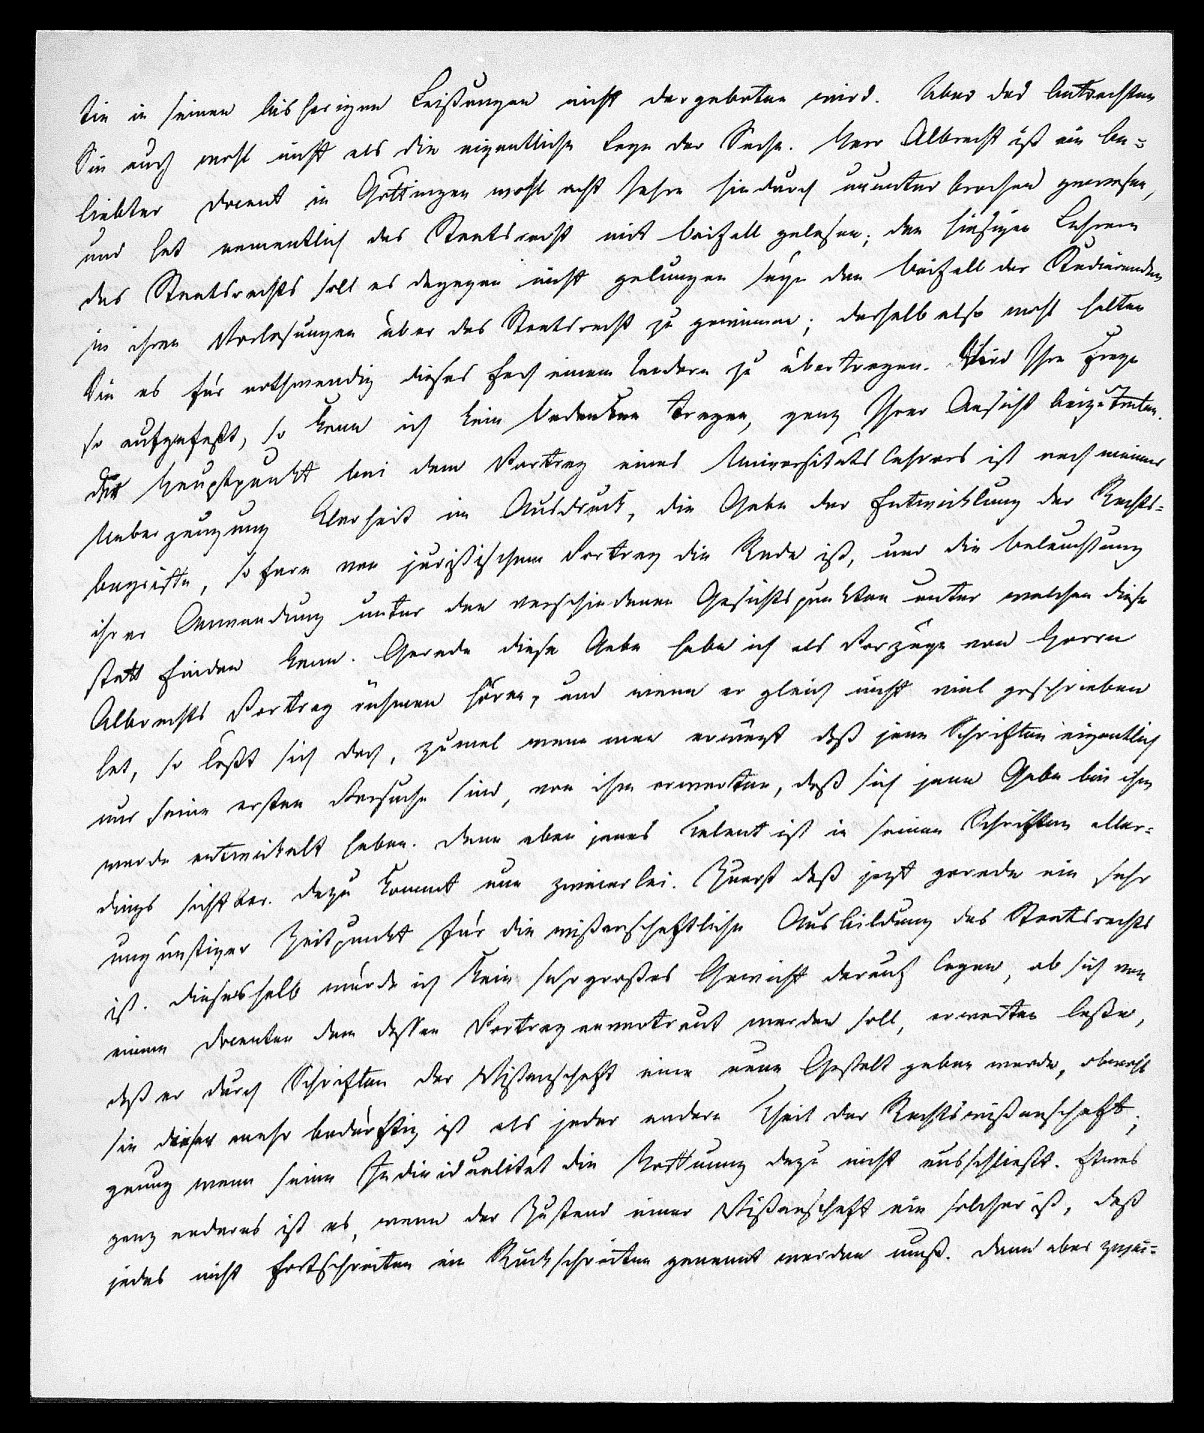 die in seinen bisherigen Leistungen nicht dargeboten wird. Aber das betrachten
Sie auch wohl nicht als die eigentliche Lage der Sache. Herr Albrecht ist ein be-
liebter Docent in Göttingen wohl acht Jahre hindurch ununterbrochen gewesen,
und hat namentlich das Staatsrecht mit Beifall gelesen; den hiesigen Lehrern
des Staatsrechts soll es dagegen nicht gelungen seyn den Beifall der Studierenden
in ihren Vorlesungen über das Staatsrecht zu gewinnen; deshalb also wohl halten
Sie es für nothwendig dieses Fach einem Andern zu übertragen. Wird Ihre Frage
so aufgefaßt, so kann ich kein Bedenken tragen, ganz Ihrer Ansicht beizutreten.
Der Hauptpunkt bei dem Vortrag eines Universitätslehrers ist nach meiner
Ueberzeugung Klarheit im Ausdruck, die Gabe der Entwicklung der Rechts-
begriffe, sofern von juristischem Vortrag die Rede ist, und die Beleuchtung
ihrer Anwendung unter den verschiedenen Gesichtspunkten unter welchen diese
statt finden kann. Gerade diese Gabe habe ich als Vorzüge von Herrn
Albrechts Vortrag rühmen hören, und wenn er gleich nicht viel geschrieben
hat, so läßt sich doch, zumal wenn man erwägt daß jene Schriften eigentlich
nur seine ersten Versuche sind, von ihm erwarten, daß sich jene Gabe bei ihm
werde entwickelt haben. Denn eben jenes Talent ist in seinen Schriften aller-
dings sichtbar. Dazu kommt nun zweierlei. Zuerst daß jetzt gerade ein sehr
ungünstiger Zeitpunkt für die wißenschaftliche Ausbildung des Staatsrechts
ist. Dieserhalb würde ich kein sehr großes Gewicht darauf legen, ob sich von
einem Docenten dem dessen Vortrag anvertraut werden soll, erwarten laße,
daß er durch Schriften der Wißenschaft eine neue Gestalt geben werde, obwohl
sie dieser mehr bedürftig ist als jeder andere Theil der Rechtswißenschaft;
genug wenn seine Individualität die Hoffnung dazu nicht ausschließt. Etwas
ganz anderes ist es, wenn der Zustand einer Wißenschaft ein solcher ist, daß
jedes nicht Fortschreiten ein Rückschreiten genannt werden muß. Dann aber zwei-